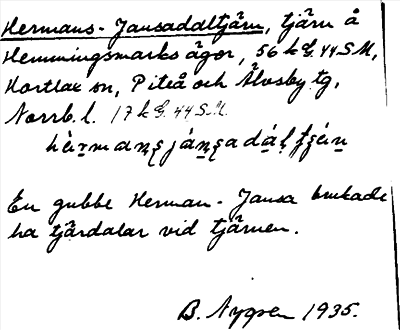 Hermans-Jansadaltjärn, tjärn å
Hemmingsmarks ägor, 56 k G. 44 S.M,
Hortlax sn, Piteå och Älvsby tg,
Norrb. l. 17 k G. 44 S.M.
En gubbe Herman-Jansa brukade
ha tjärdalar vid tjärnen.
B. Nygren 1935.